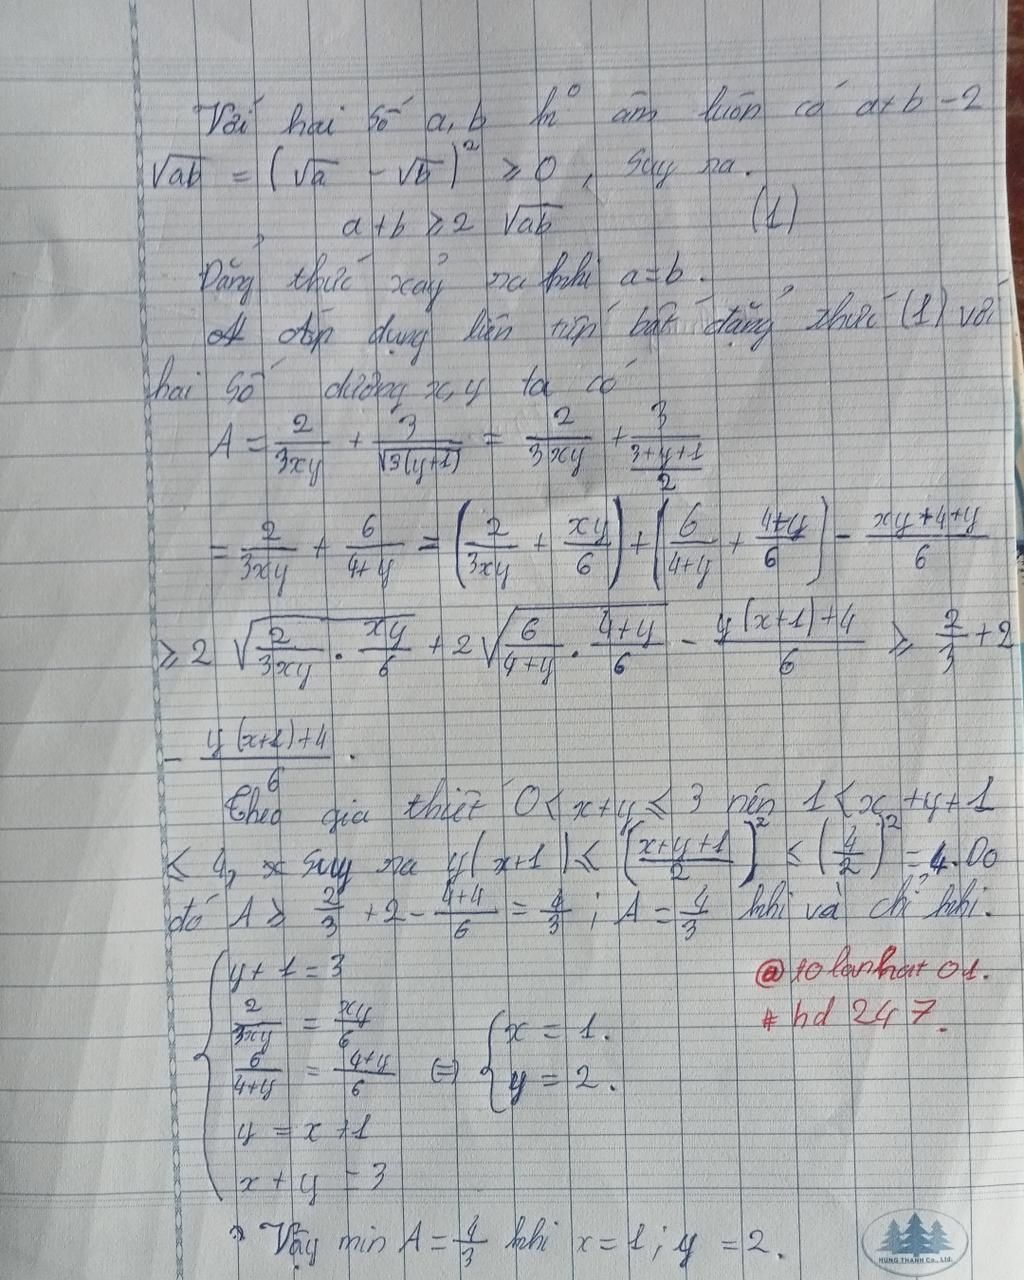 Với hai số a, b k° âm luôn có a+b-2
√ab = (√a - √b)² ≥ 0, suy ra.
a+b ≥ 2 √ab (1)
Đẳng thức xảy ra khi a=b.
Áp dụng liên tiếp bất đẳng thức (1) với
hai số dương x, y ta có
A = 2/3xy + 3/√3(y+1) = 2/3xy + 3/((3+y+1)/2)
= 2/3xy + 6/4+y = (2/3xy + xy/6) + (6/4+y + 4+y/6) - xy+4+y/6
≥ 2 √(2/3xy . xy/6) + 2 √(6/4+y . 4+y/6) - y(x+1)+4/6 ≥ 2/3 + 2
- y(x+1)+4/6.
Theo giả thiết 0 < x+y ≤ 3 nên 1 < x+y+1
≤ 4, suy ra y(x+1) ≤ (x+y+1/2)² ≤ (4/2)² = 4. Do
đó A ≥ 2/3 + 2 - 4+4/6 = 4/3; A = 4/3 khi và chỉ khi.
y+1 = 3
2/3xy = xy/6
6/4+y = 4+y/6 (=)
y = x+1
x+y = 3
x = 1.
y = 2.
@tolanhat01.
# hd 247.
Vậy min A = 4/3 khi x = 1; y = 2.
HUNG THANH Co., Ltd.